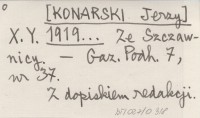 [KONARSKI Jerzy]
X.Y. 1919... Ze Szczaw-
nicy. — Gaz. Podh. 7,
nr 37.
Z dopiskiem redakcji.